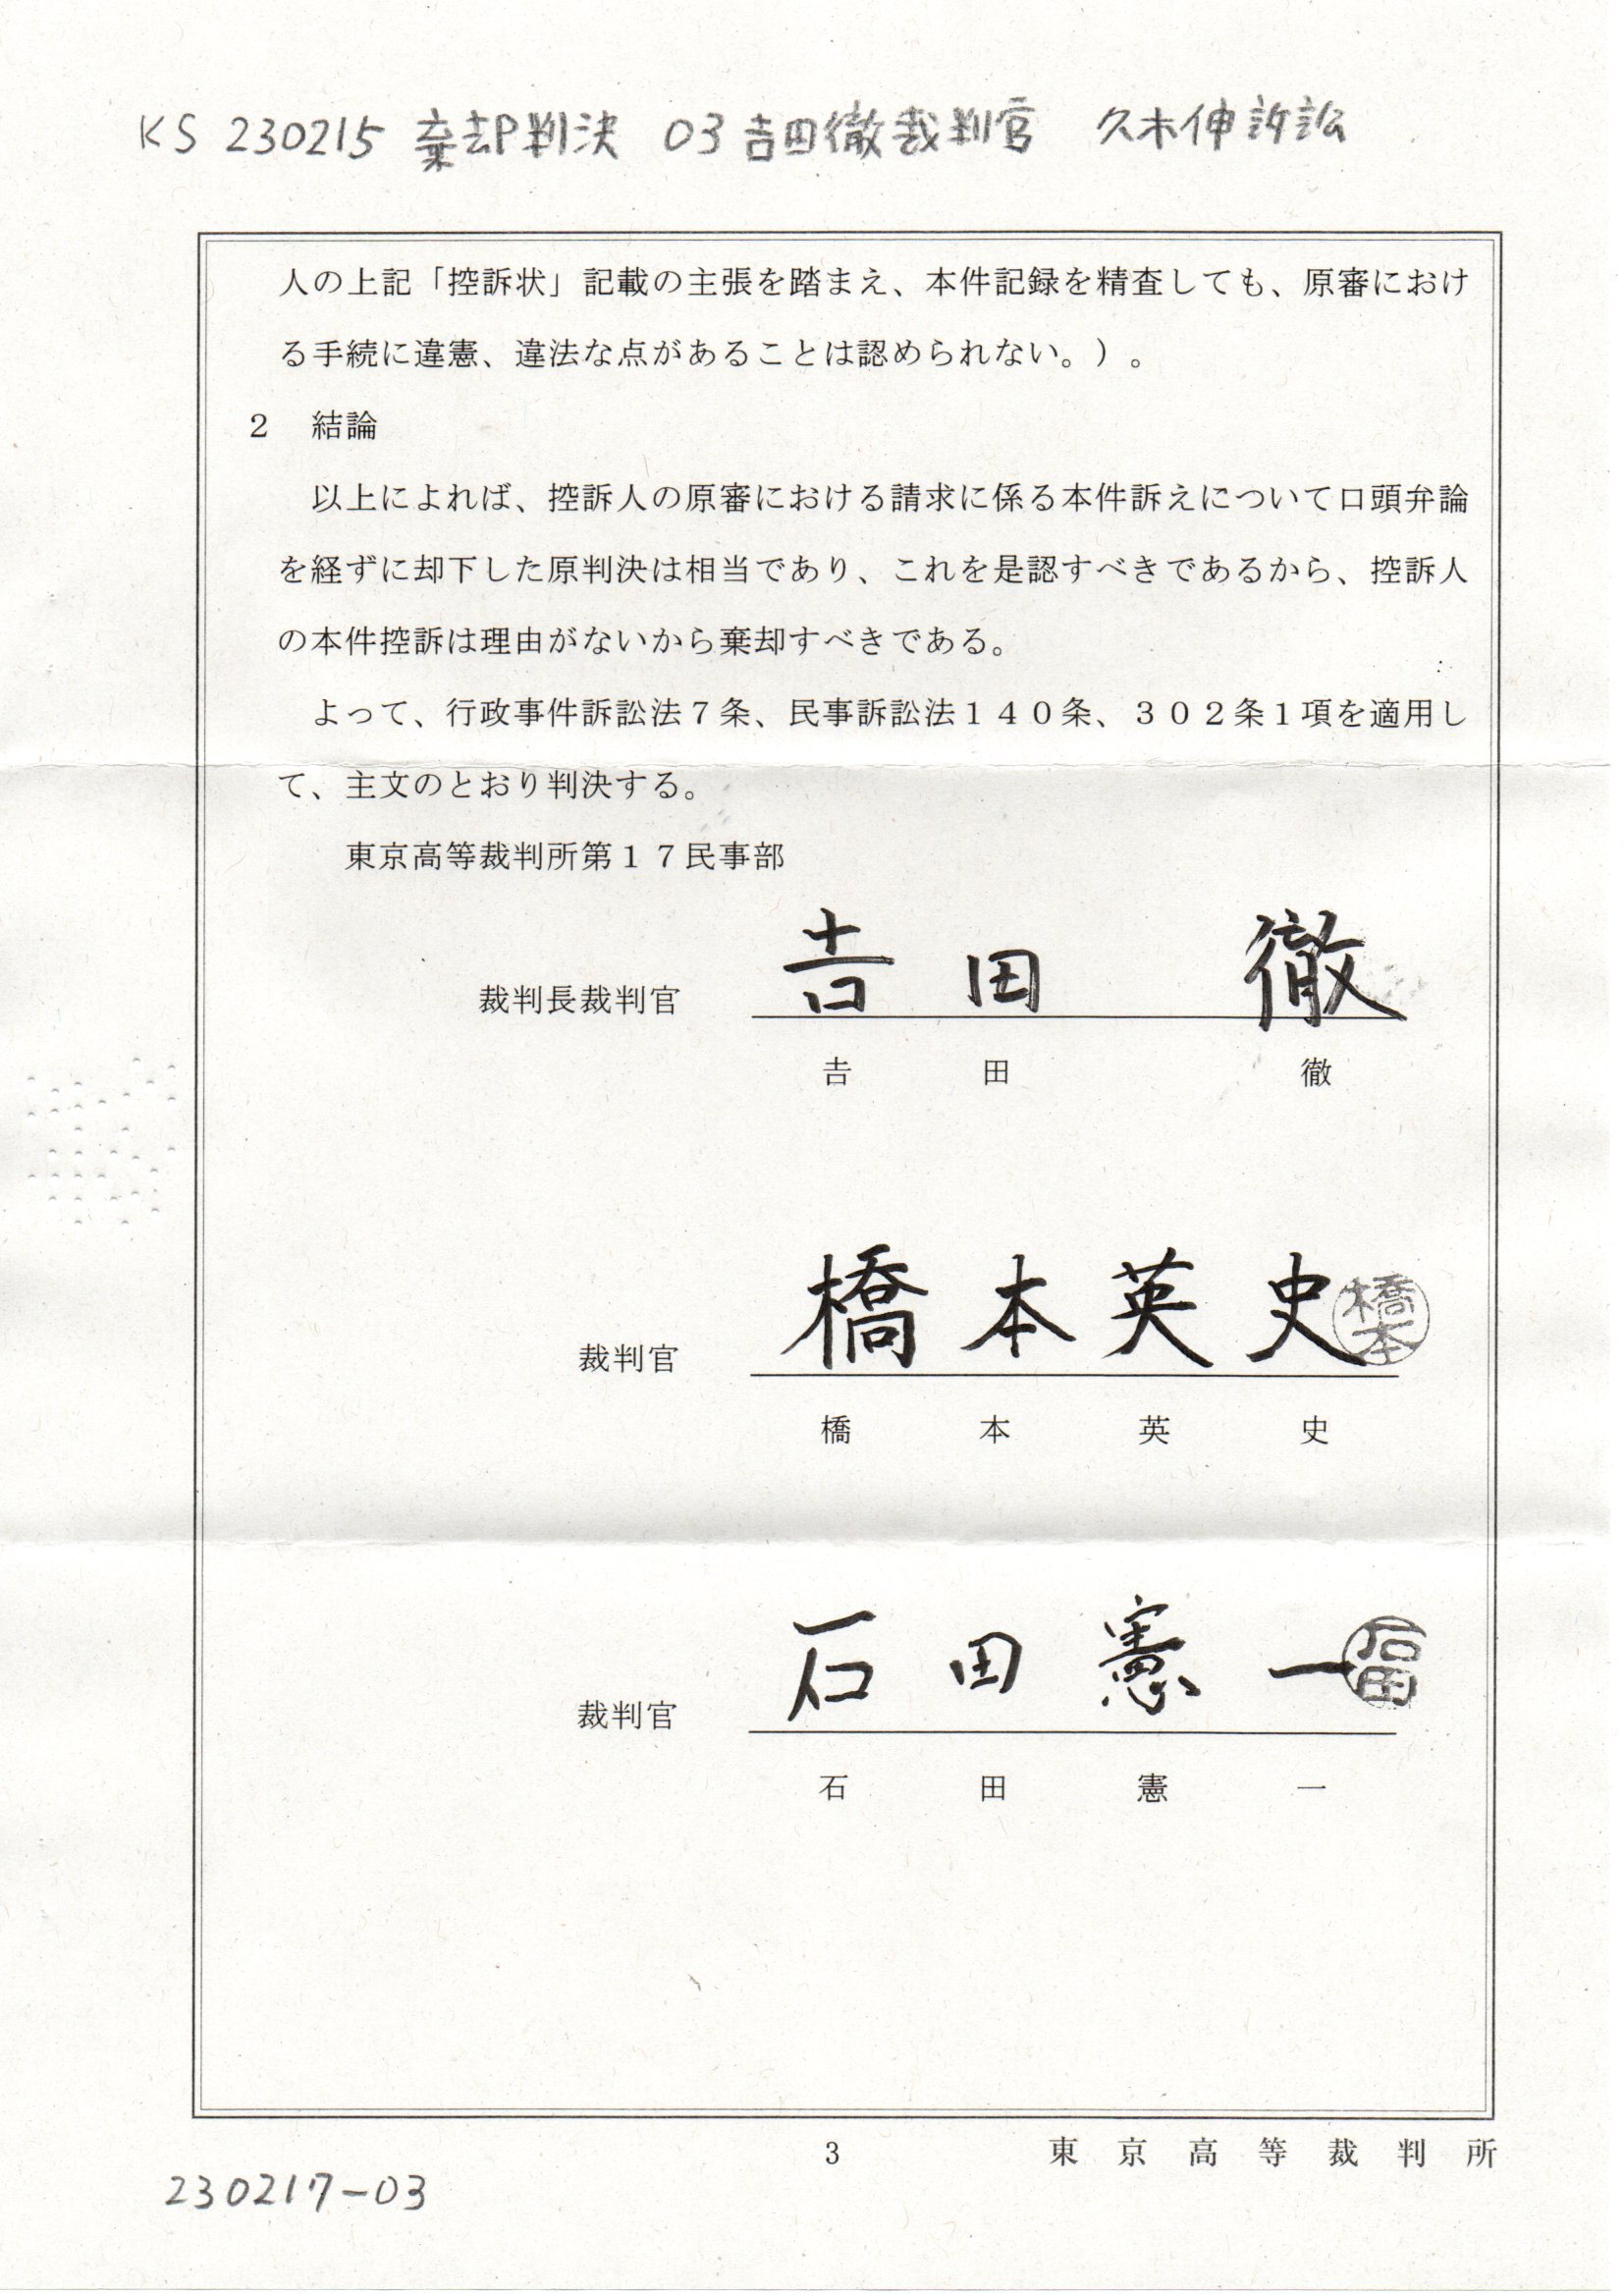 KS 230215 棄却判決 03𠮷田徹裁判官 久木伸訴訟
人の上記「控訴状」記載の主張を踏まえ、本件記録を精査しても、原審におけ
る手続に違憲、違法な点があることは認められない。）。
２　結論
以上によれば、控訴人の原審における請求に係る本件訴えについて口頭弁論
を経ずに却下した原判決は相当であり、これを是認すべきであるから、控訴人
の本件控訴は理由がないから棄却すべきである。
よって、行政事件訴訟法７条、民事訴訟法１４０条、３０２条１項を適用し
て、主文のとおり判決する。
東京高等裁判所第１７民事部
裁判長裁判官 𠮷田 徹
𠮷 田 徹
裁判官 橋本英史 橋本
橋 本 英 史
裁判官 石田憲一 石田
石 田 憲 一
3 東京高等裁判所
230217-03